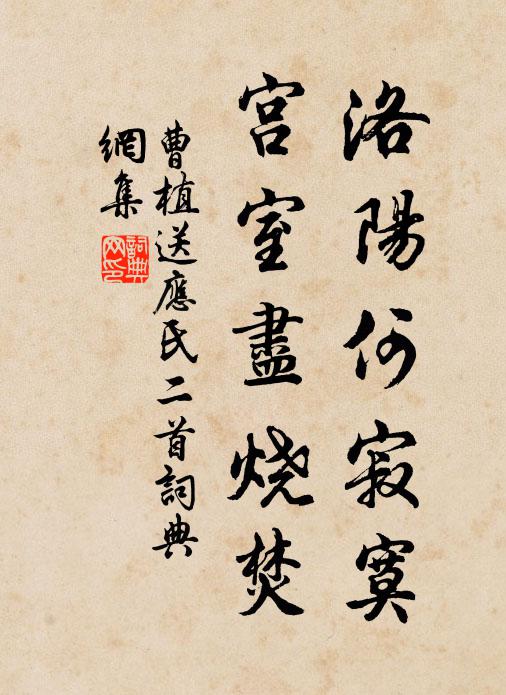 洛陽何寂寞
宮室盡燒焚
曹植送應氏二首詞典
網集
詞典网印